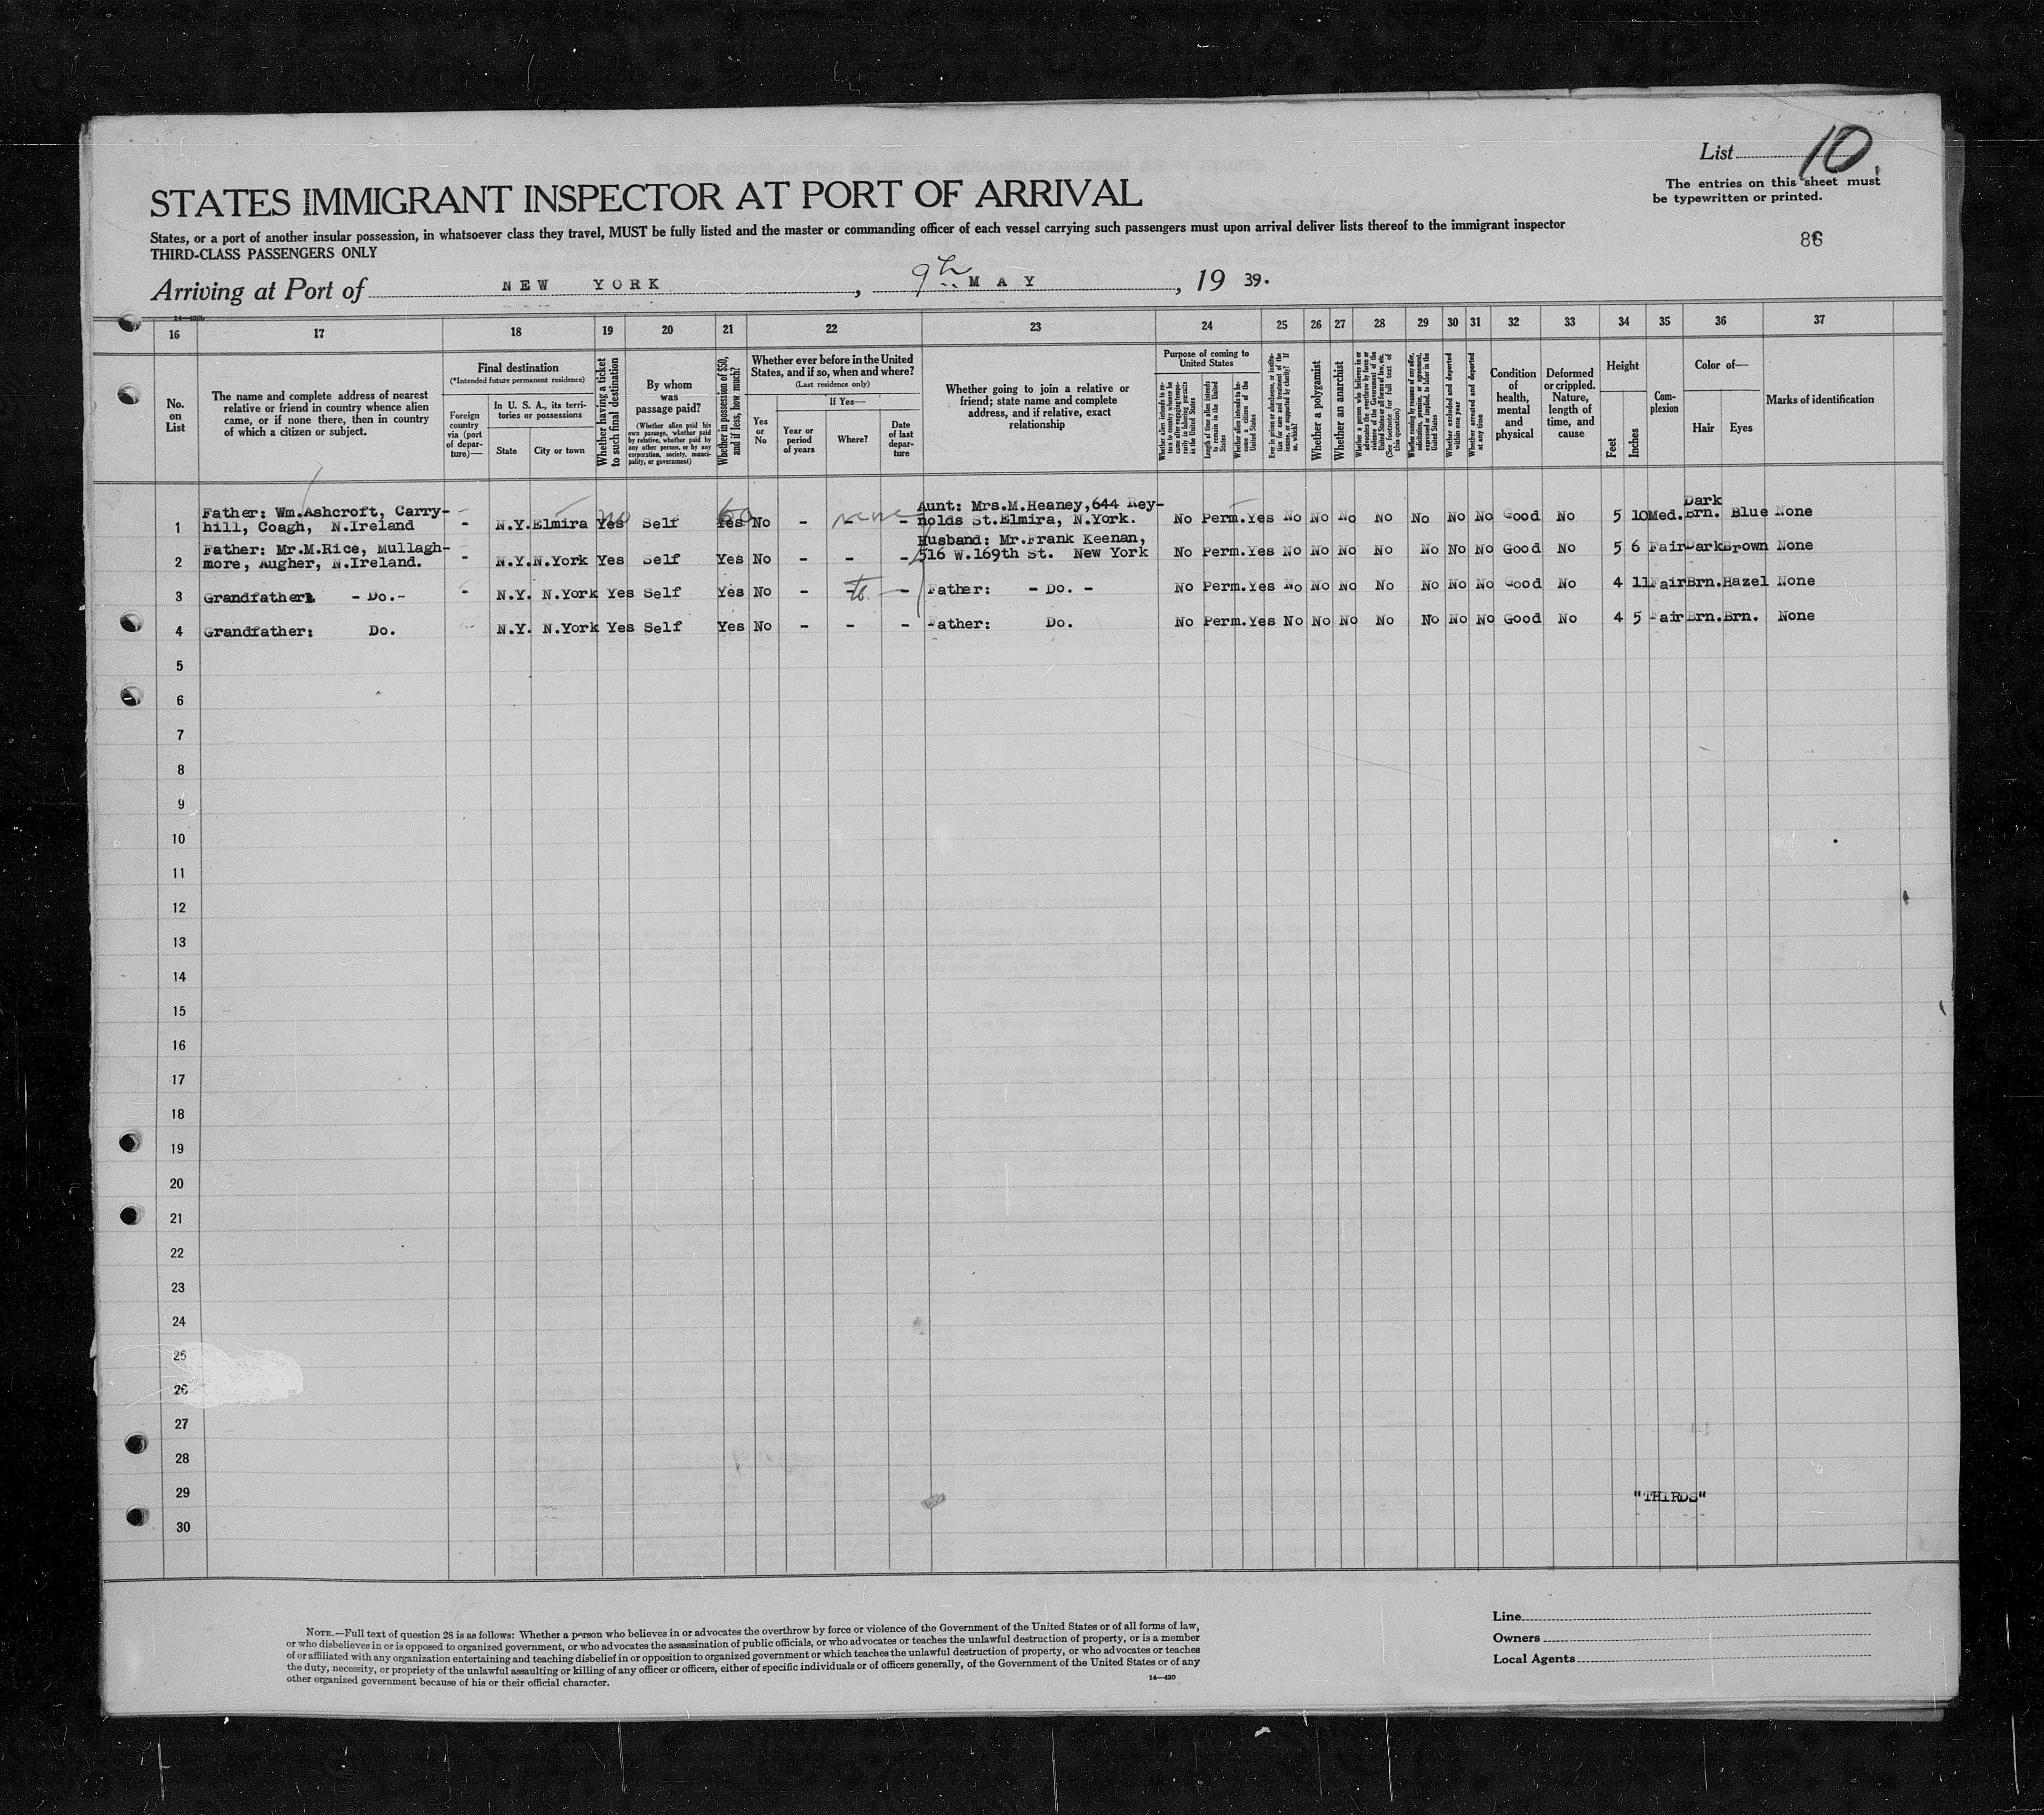 List 10.
The entries on this sheet must
be typewritten or printed.
STATES IMMIGRANT INSPECTOR AT PORT OF ARRIVAL
States, or a port of another insular possession, in whatsoever class they travel, MUST be fully listed and the master or commanding officer of each vessel carrying such passengers must upon arrival deliver lists thereof to the immigrant inspector
THIRD-CLASS PASSENGERS ONLY
86
Arriving at Port of NEW YORK, 9th MAY, 19 39.
16 17 18 19 20 21 22 23 24 25 26 27 28 29 30 31 32 33 34 35 36 37
No. on List
The name and complete address of nearest relative or friend in country whence alien came, or if none there, then in country of which a citizen or subject.
Final destination
(*Intended future permanent residence)
Foreign country via (port of departure)—
In U. S. A., its territories or possessions
State
City or town
Whether having a ticket to such final destination
By whom was passage paid?
(Whether alien paid his own passage, whether paid by relative, whether paid by any other person, or by any corporation, society, municipality, or government)
Whether in possession of $50, and if less, how much?
Whether ever before in the United States, and if so, when and where?
(Last residence only)
Yes or No
If Yes—
Year or period of years
Where?
Date of last departure
Whether going to join a relative or friend; state name and complete address, and if relative, exact relationship
Purpose of coming to United States
Whether alien intends to return to country whence he came after engaging temporarily in laboring pursuits in the United States
Length of time alien intends to remain in the United States
Whether alien intends to become a citizen of the United States
Ever in prison or almshouse, or institution for care and treatment of the insane, or supported by charity? If so, which?
Whether a polygamist
Whether an anarchist
Whether a person who believes in or advocates the overthrow by force or violence of the Government of the United States or all forms of law, etc. (See footnote for full text of this question)
Whether coming by reason of any offer, solicitation, promise, or agreement, expressed or implied, to labor in the United States
Whether excluded and deported within one year
Whether arrested and deported at any time
Condition of health, mental and physical
Deformed or crippled. Nature, length of time, and cause
Height
Feet
Inches
Complexion
Color of—
Hair
Eyes
Marks of identification
1 Father: Wm.Ashcroft, Carry-
hill, Coagh, N.Ireland - N.Y. Elmira Yes no Self Yes 60 No - - - none Aunt: Mrs.M.Heaney,644 Rey-
nolds St.Elmira, N.York. No Perm. Yes No No No No No No No Good No 5 10 Med. Dark Brn. Blue None
2 Father: Mr.M.Rice, Mullagh-
more, Augher, N.Ireland. - N.Y. N.York Yes Self Yes No - - - Husband: Mr.Frank Keenan,
516 W.169th St. New York No Perm. Yes No No No No No No No Good No 5 6 Fair Dark Brown None
3 Grandfather: - Do.- - N.Y. N.York Yes Self Yes No - - - Father: - Do. - No Perm. Yes No No No No No No No Good No 4 11 Fair Brn. Hazel None
4 Grandfather: Do. N.Y. N.York Yes Self Yes No - - - Father: Do. No Perm. Yes No No No No No No No Good No 4 5 Fair Brn. Brn. None
5
6
7
8
9
10
11
12
13
14
15
16
17
18
19
20
21
22
23
24
25
26
27
28
29
"THIRDS"
30
NOTE.—Full text of question 28 is as follows: Whether a person who believes in or advocates the overthrow by force or violence of the Government of the United States or of all forms of law,
or who disbelieves in or is opposed to organized government, or who advocates the assassination of public officials, or who advocates or teaches the unlawful destruction of property, or is a member
of or affiliated with any organization entertaining and teaching disbelief in or opposition to organized government or which teaches the unlawful destruction of property, or who advocates or teaches
the duty, necessity, or propriety of the unlawful assaulting or killing of any officer or officers, either of specific individuals or of officers generally, of the Government of the United States or of any
other organized government because of his or their official character.
14—430
Line
Owners
Local Agents